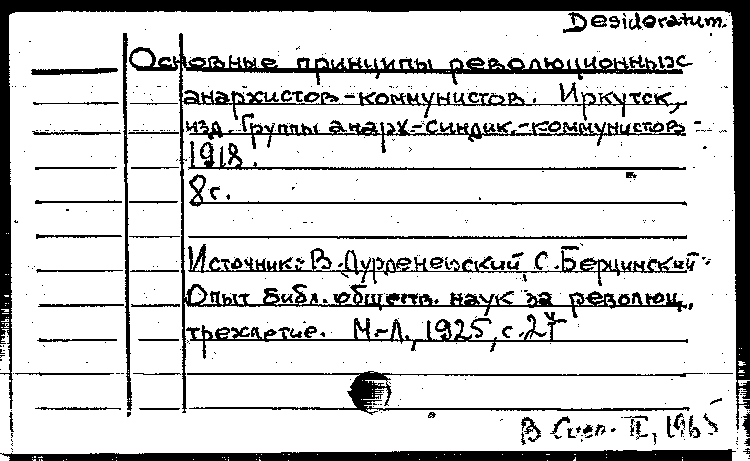 Desideratum.
Основные принципы революционных
анархистов-коммунистов. Иркутск,
изд. Группы анарх-синдик.-коммунистов -
1918.
8с.
Источник: В. Дурденевский, С. Берцинский.
Опыт библ. обществ. наук за революц.
трехлетие. М-Л., 1925, с.
В II, 1965